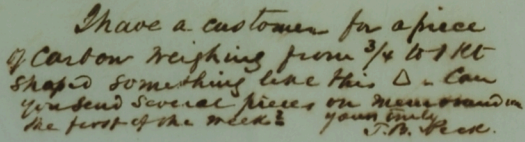 I have a customer for a piece
of Carbon weighing from 3/4 to 1 Kt
shaped something like this △. Can
you send several pieces on memorandum
the first of the week? yours truly
T. B. Peck.